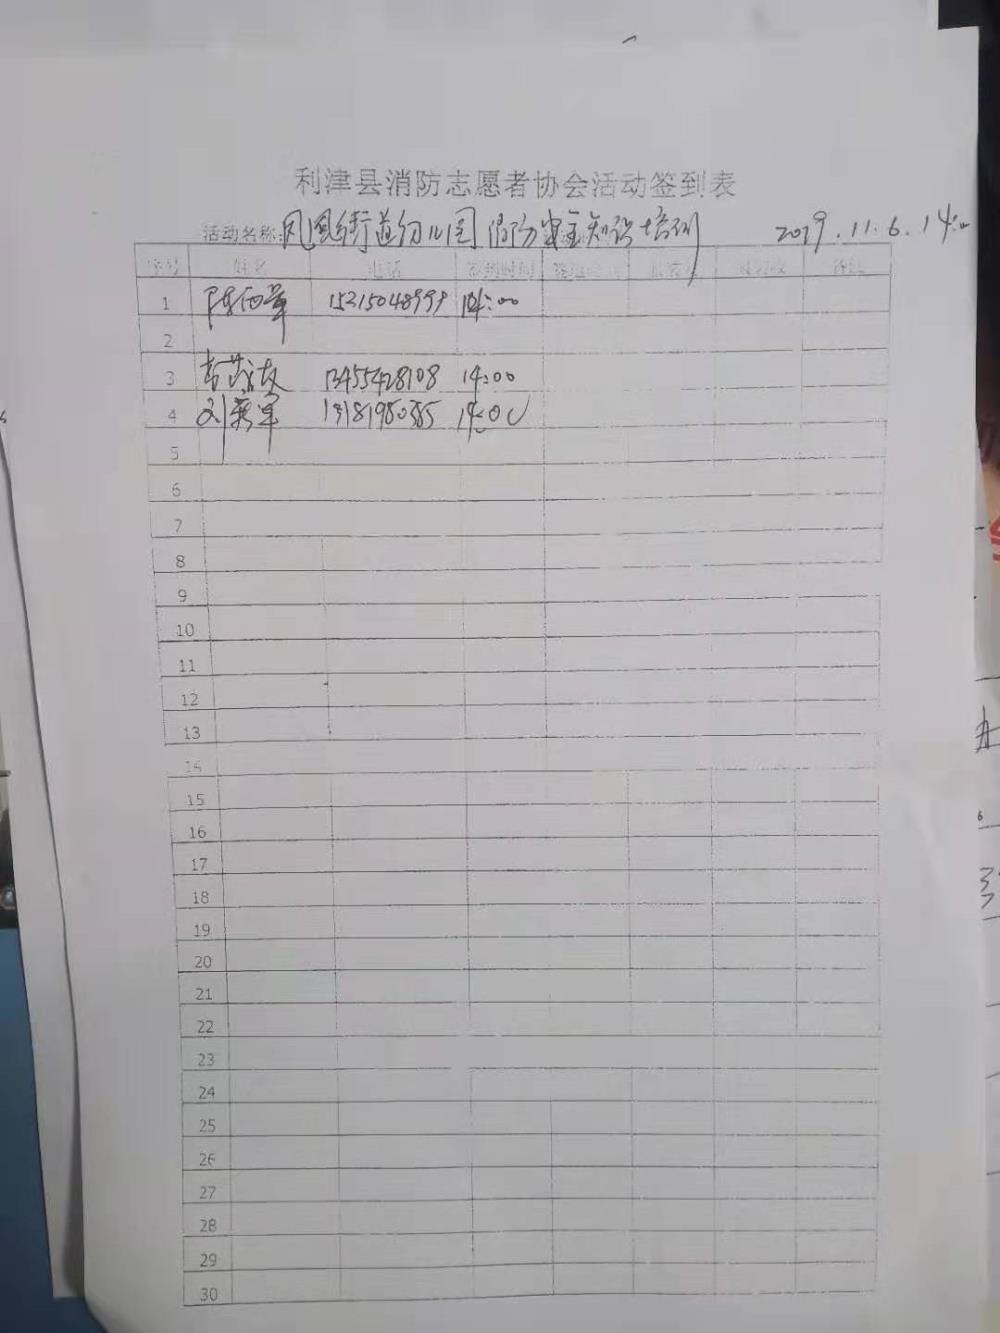 利津县消防志愿者协会活动签到表
活动名称: 凤凰街道幼儿园消防安全知识培训 2019.11.6.14:00
序号 姓名 电话 签到时间 备注
1 15215048999 14:00
2
3 13455428108 14:00
4 刘 14:00
5
6
7
8
9
10
11
12
13
14
15
16
17
18
19
20
21
22
23
24
25
26
27
28
29
30